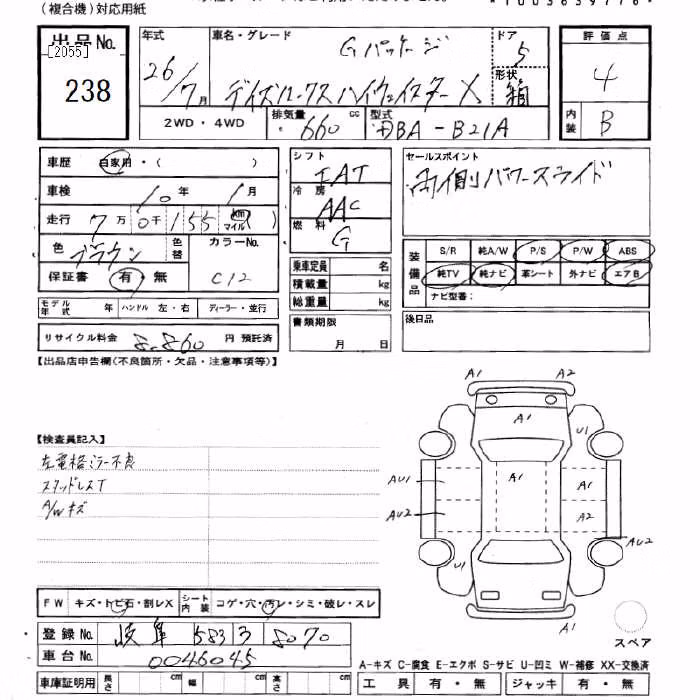 (複合機)対応用紙
出品No.
[2055]
238
年式
26/7月
車名・グレード
Gパッケージ
デイズルークスハイウェイスターX
ドア
5
形状
箱
評価点
4
内装
B
2WD・4WD
排気量
660 cc
型式
DBA-B21A
車歴 自家用・( )
車検 10年 1月
走行 7万0千155 km マイル
色 ブラウン 色替
カラーNo.
C12
保証書 有・無
モデル年式 年 ハンドル 左・右 ディーラー・並行
リサイクル料金 8,860 円 預託済
シフト
IAT
冷房
AAC
燃料
G
乗車定員 名
積載量 kg
総重量 kg
書類期限
月 日
セールスポイント
両側パワースライド
装備品
S/R 純A/W P/S P/W ABS
純TV 純ナビ 革シート 外ナビ エアB
ナビ型番:
後日品
【出品店申告欄(不良箇所・欠品・注意事項等)】
【検査員記入】
左電格ミラー不良
スタッドレスT
A/Wキズ
A1 A2
A1
U1
A1
A1
A2
AU1
AU2
AU2
U1
A1
スペア
FW キズ・トビ石・割レX シート内装 コゲ・穴・汚レ・シミ・破レ・スレ
登録No. 岐阜 583 ヲ 8070
車台No. 0046045
車庫証明用 長さ cm 幅 cm 高さ cm
A-キズ C-腐食 E-エクボ S-サビ U-凹ミ W-補修 XX-交換済
工具 有・無 ジャッキ 有・無